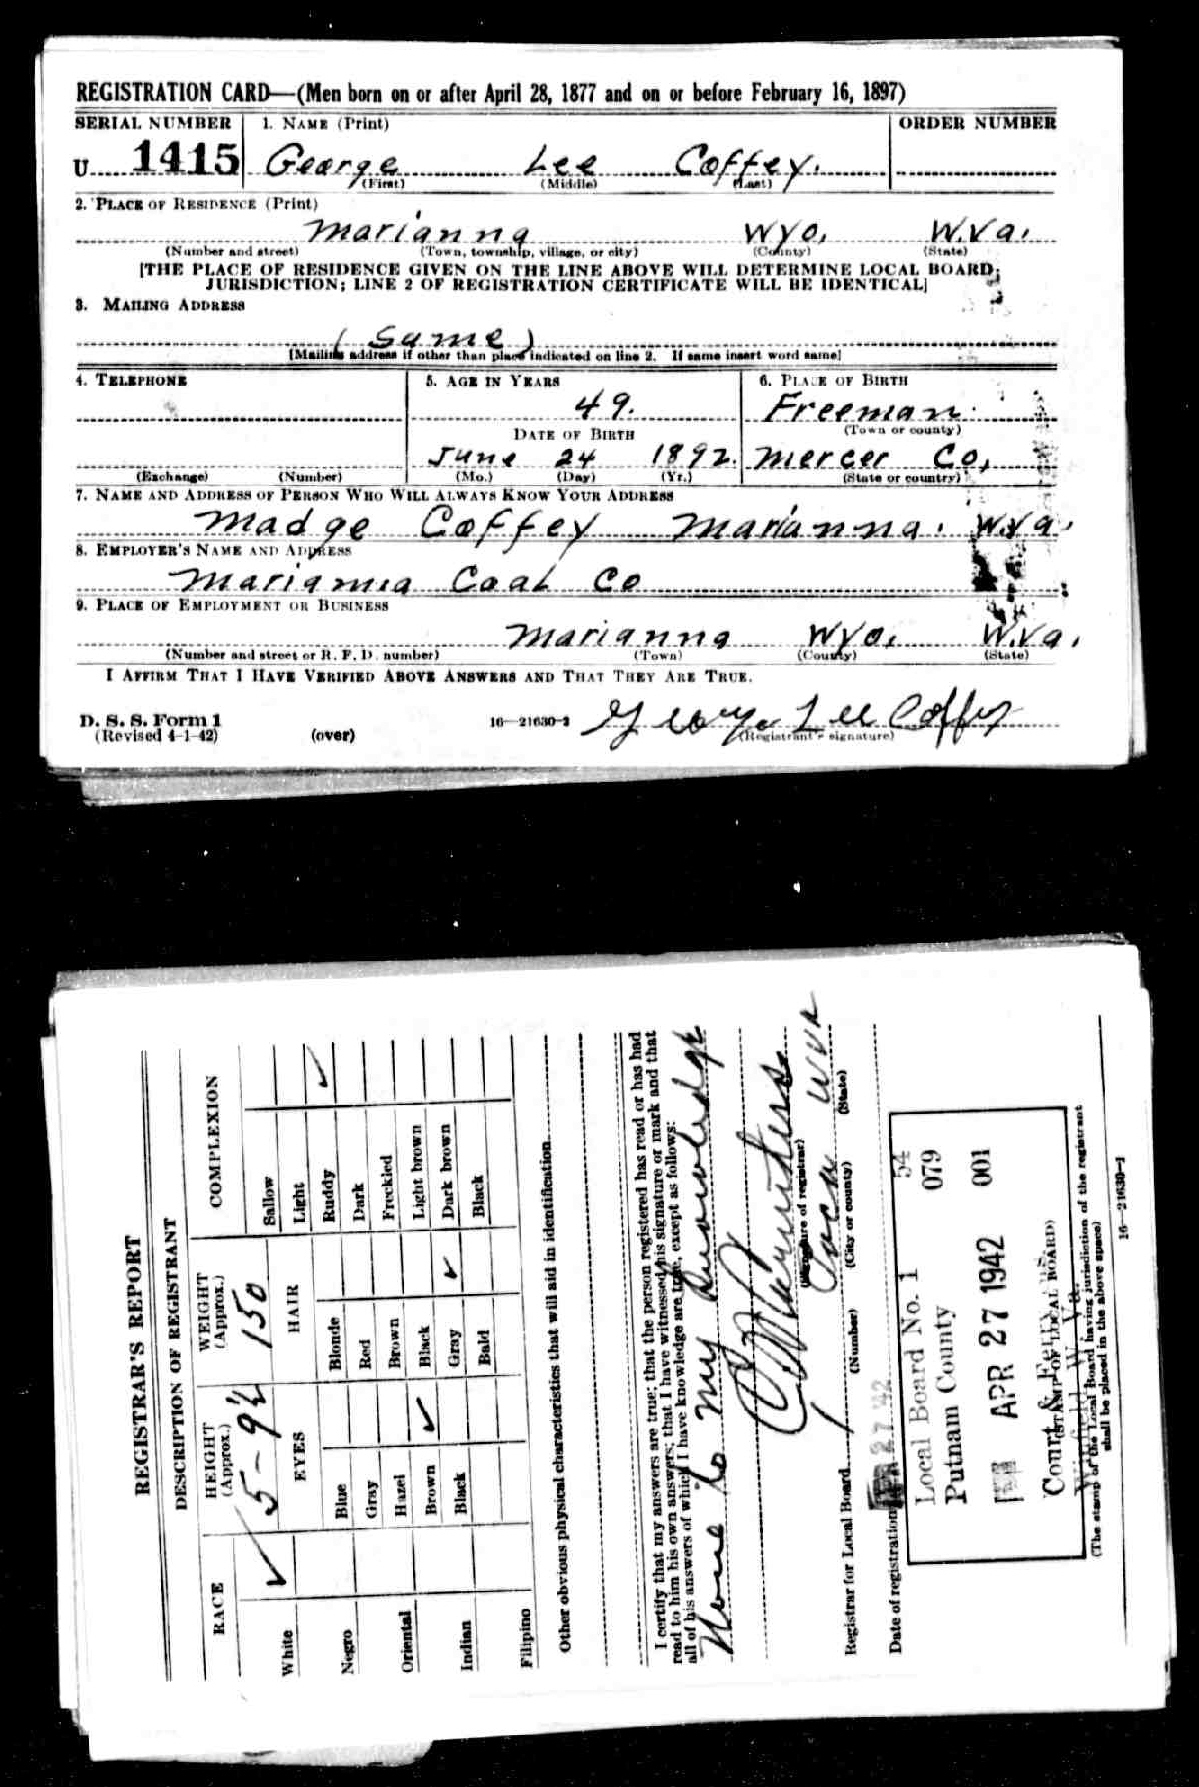 REGISTRATION CARD—(Men born on or after April 28, 1877 and on or before February 16, 1897)
SERIAL NUMBER 1. NAME (Print) ORDER NUMBER
U 1415 George Lee Coffey.
(First) (Middle) (Last)
2. PLACE OF RESIDENCE (Print)
Marianna Wyo. W.Va.
(Number and street) (Town, township, village, or city) (County) (State)
[THE PLACE OF RESIDENCE GIVEN ON THE LINE ABOVE WILL DETERMINE LOCAL BOARD
JURISDICTION; LINE 2 OF REGISTRATION CERTIFICATE WILL BE IDENTICAL]
3. MAILING ADDRESS
(Same)
[Mailing address if other than place indicated on line 2. If same insert word same]
4. TELEPHONE 5. AGE IN YEARS 6. PLACE OF BIRTH
49. Freeman
DATE OF BIRTH (Town or county)
June 24 1892. Mercer Co,
(Exchange) (Number) (Mo.) (Day) (Yr.) (State or country)
7. NAME AND ADDRESS OF PERSON WHO WILL ALWAYS KNOW YOUR ADDRESS
Madge Coffey Marianna. W.Va.
8. EMPLOYER'S NAME AND ADDRESS
Marianna Coal Co
9. PLACE OF EMPLOYMENT OR BUSINESS
Marianna Wyo. W.Va.
(Number and street or R. F. D. number) (Town) (County) (State)
I AFFIRM THAT I HAVE VERIFIED ABOVE ANSWERS AND THAT THEY ARE TRUE.
D. S. S. Form 1 16—21630-2 George Lee Coffey
(Revised 4-1-42) (over) (Registrant's signature)
REGISTRAR'S REPORT
DESCRIPTION OF REGISTRANT
RACE HEIGHT (Approx.) WEIGHT (Approx.) COMPLEXION
White ✓ 5-9½ 150 Sallow
EYES HAIR Light
Negro Blue Blonde Ruddy ✓
Gray Red Dark
Oriental Hazel Brown Freckled
Brown ✓ Black Light brown
Indian Black Gray ✓ Dark brown
Bald Black
Filipino
Other obvious physical characteristics that will aid in identification
I certify that my answers are true; that the person registered has read or has had
read to him his own answers; that I have witnessed his signature or mark and that
all of his answers of which I have knowledge are true, except as follows:
None to my knowledge
(Signature of registrar)
Registrar for Local Board 1 W Va
(Number) (City or county) (State)
Date of registration APR 27 '42
Local Board No. 1 54
Putnam County 079
APR 27 1942 001
Court & Ferry Sts.
(STAMP OF LOCAL BOARD)
Winfield W. Va.
(The stamp of the Local Board having jurisdiction of the registrant
shall be placed in the above space)
16—21630-1